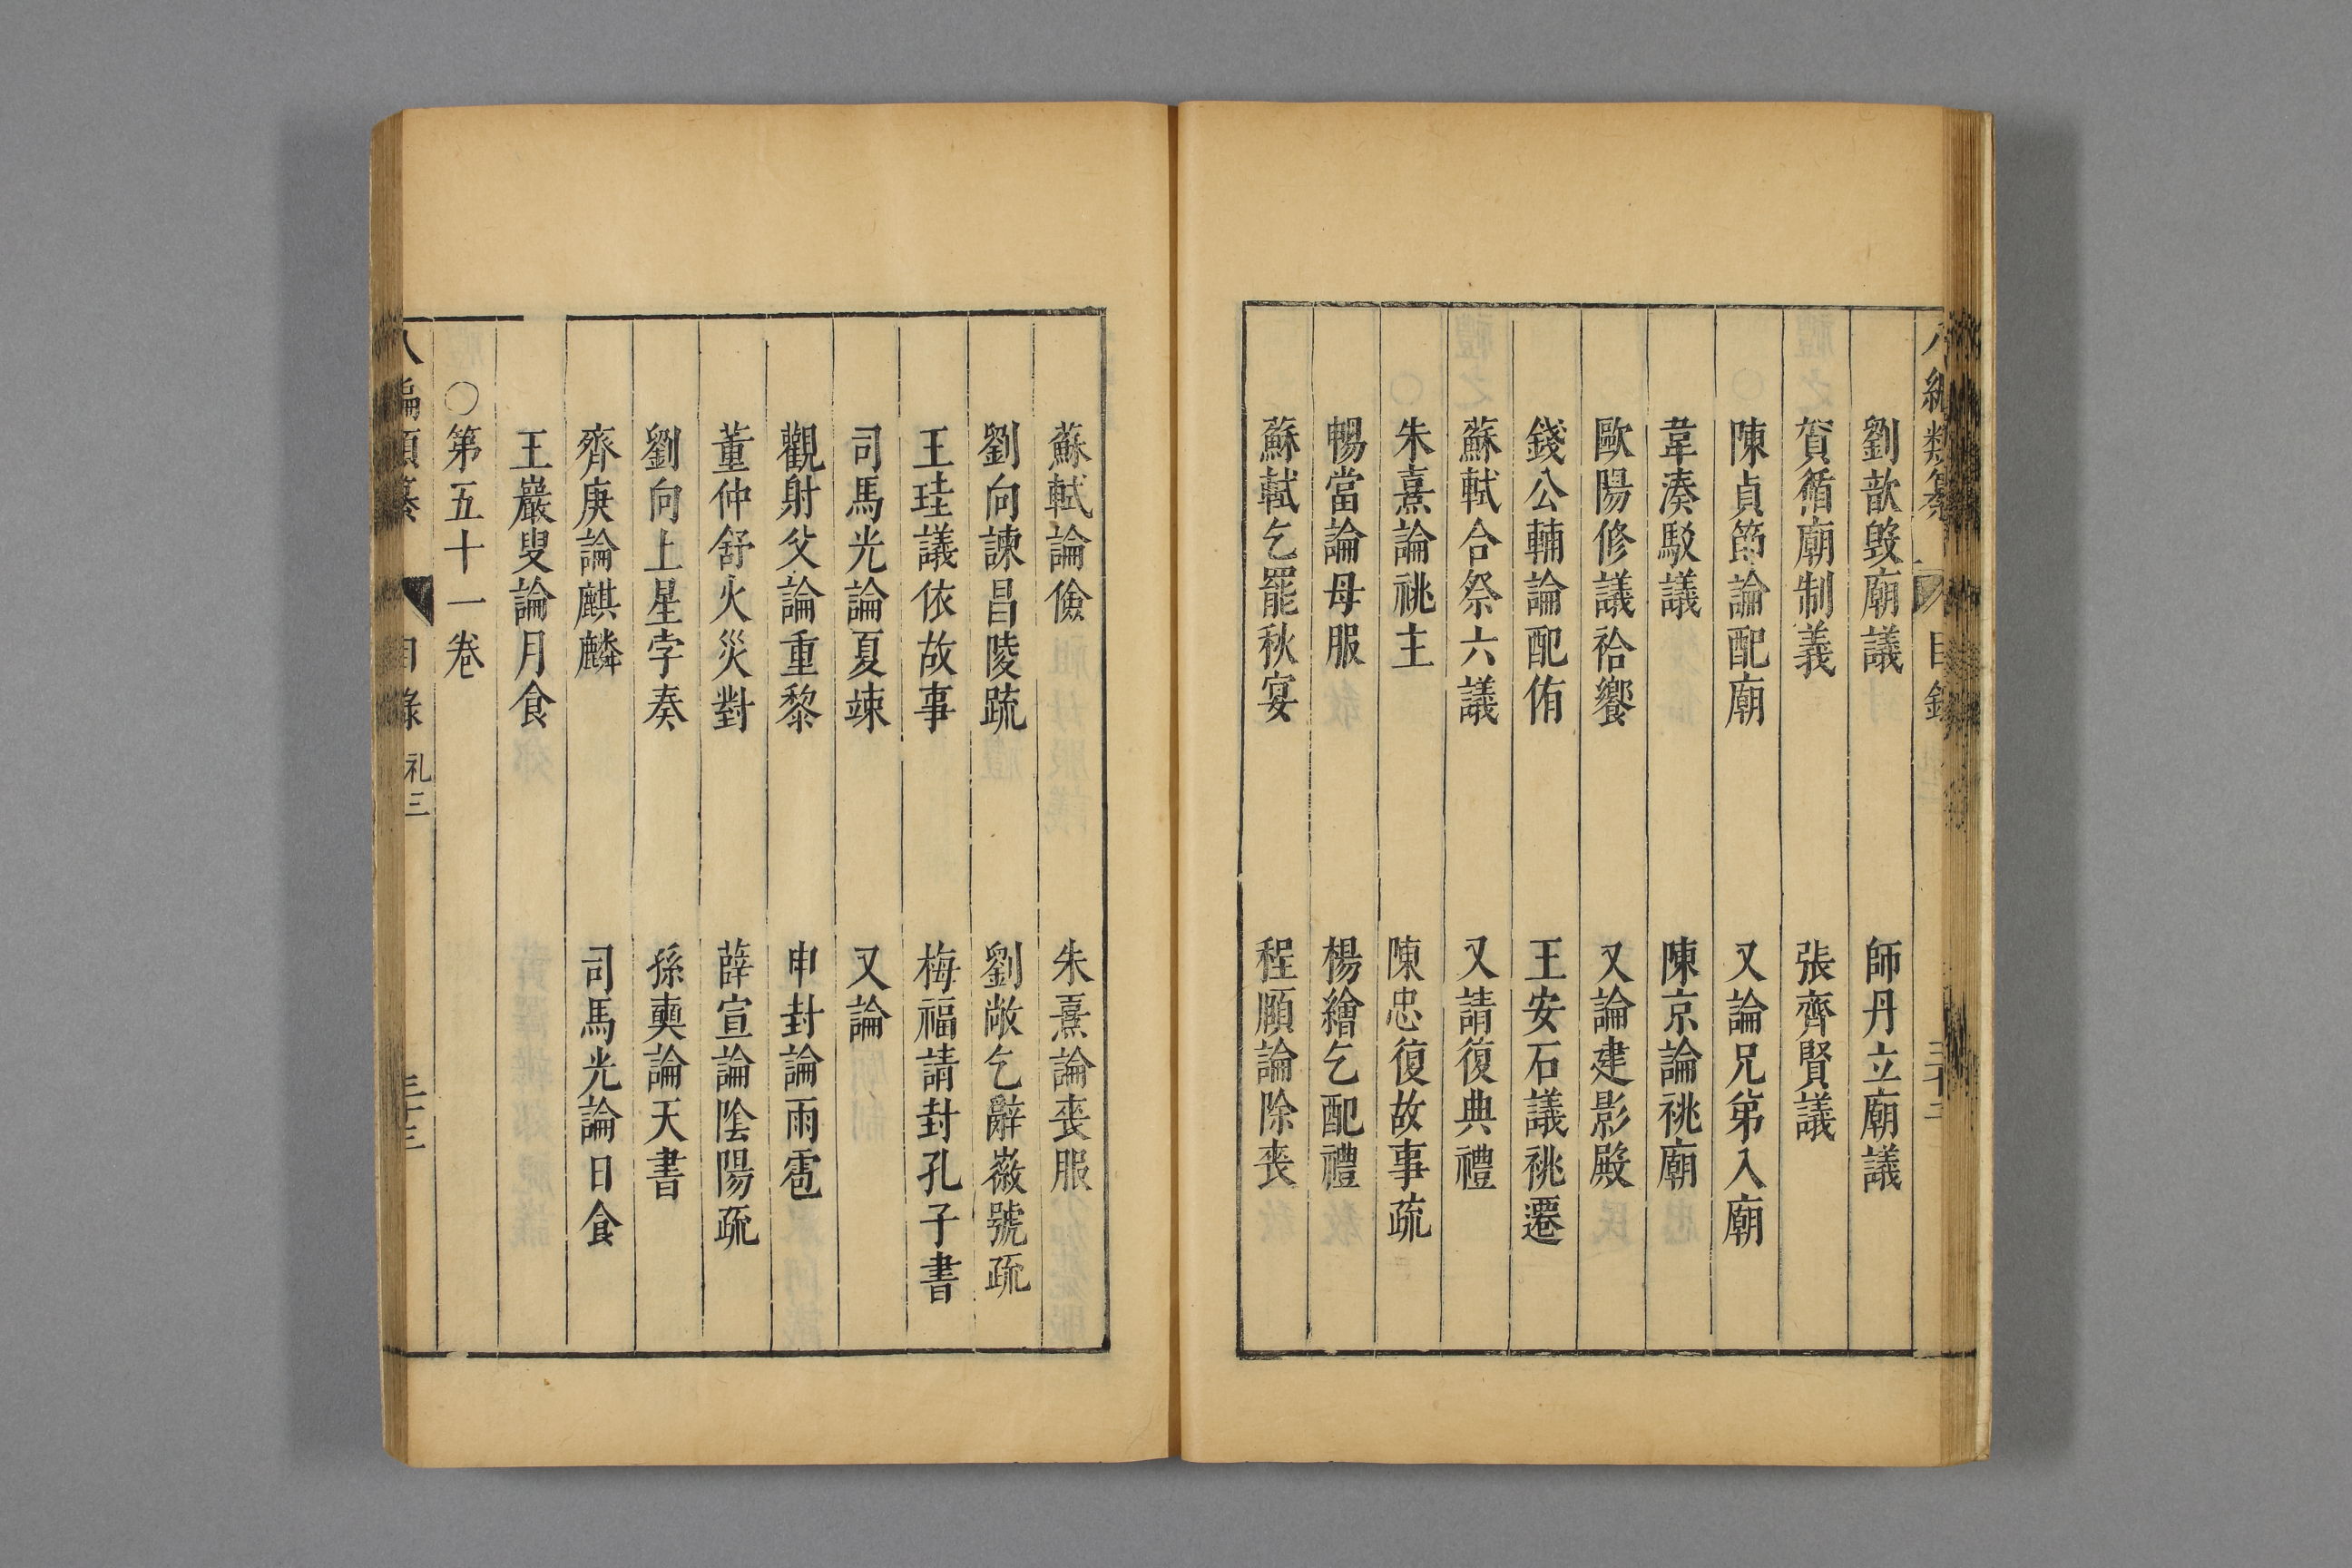 劉歆毀廟議　師丹立廟議
賀循廟制義　張齊賢議
陳貞節論配廟　又論兄弟入廟
韋湊駁議　陳京論祧廟
歐陽修議祫饗　又論建影殿
錢公輔論配侑　王安石議祧遷
蘇軾合祭六議　又請復典禮
朱熹論祧主　陳忠復故事疏
暢當論母服　楊繪乞配禮
蘇軾乞罷秋宴　程願論除喪
蘇軾論儉　朱熹論喪服
劉向諫昌陵疏　劉敞乞辭嶶號疏
王珪議依故事　梅福請封孔子書
司馬光論夏竦　又論
觀射父論重黎　申封論雨雹
董仲舒火災對　薛宣論陰陽疏
劉向上星孛奏　孫奭論天書
齊庚論麒麟　司馬光論日食
王巖叟論月食
○第五十一卷
八編類纂　目錄　礼三　三十三